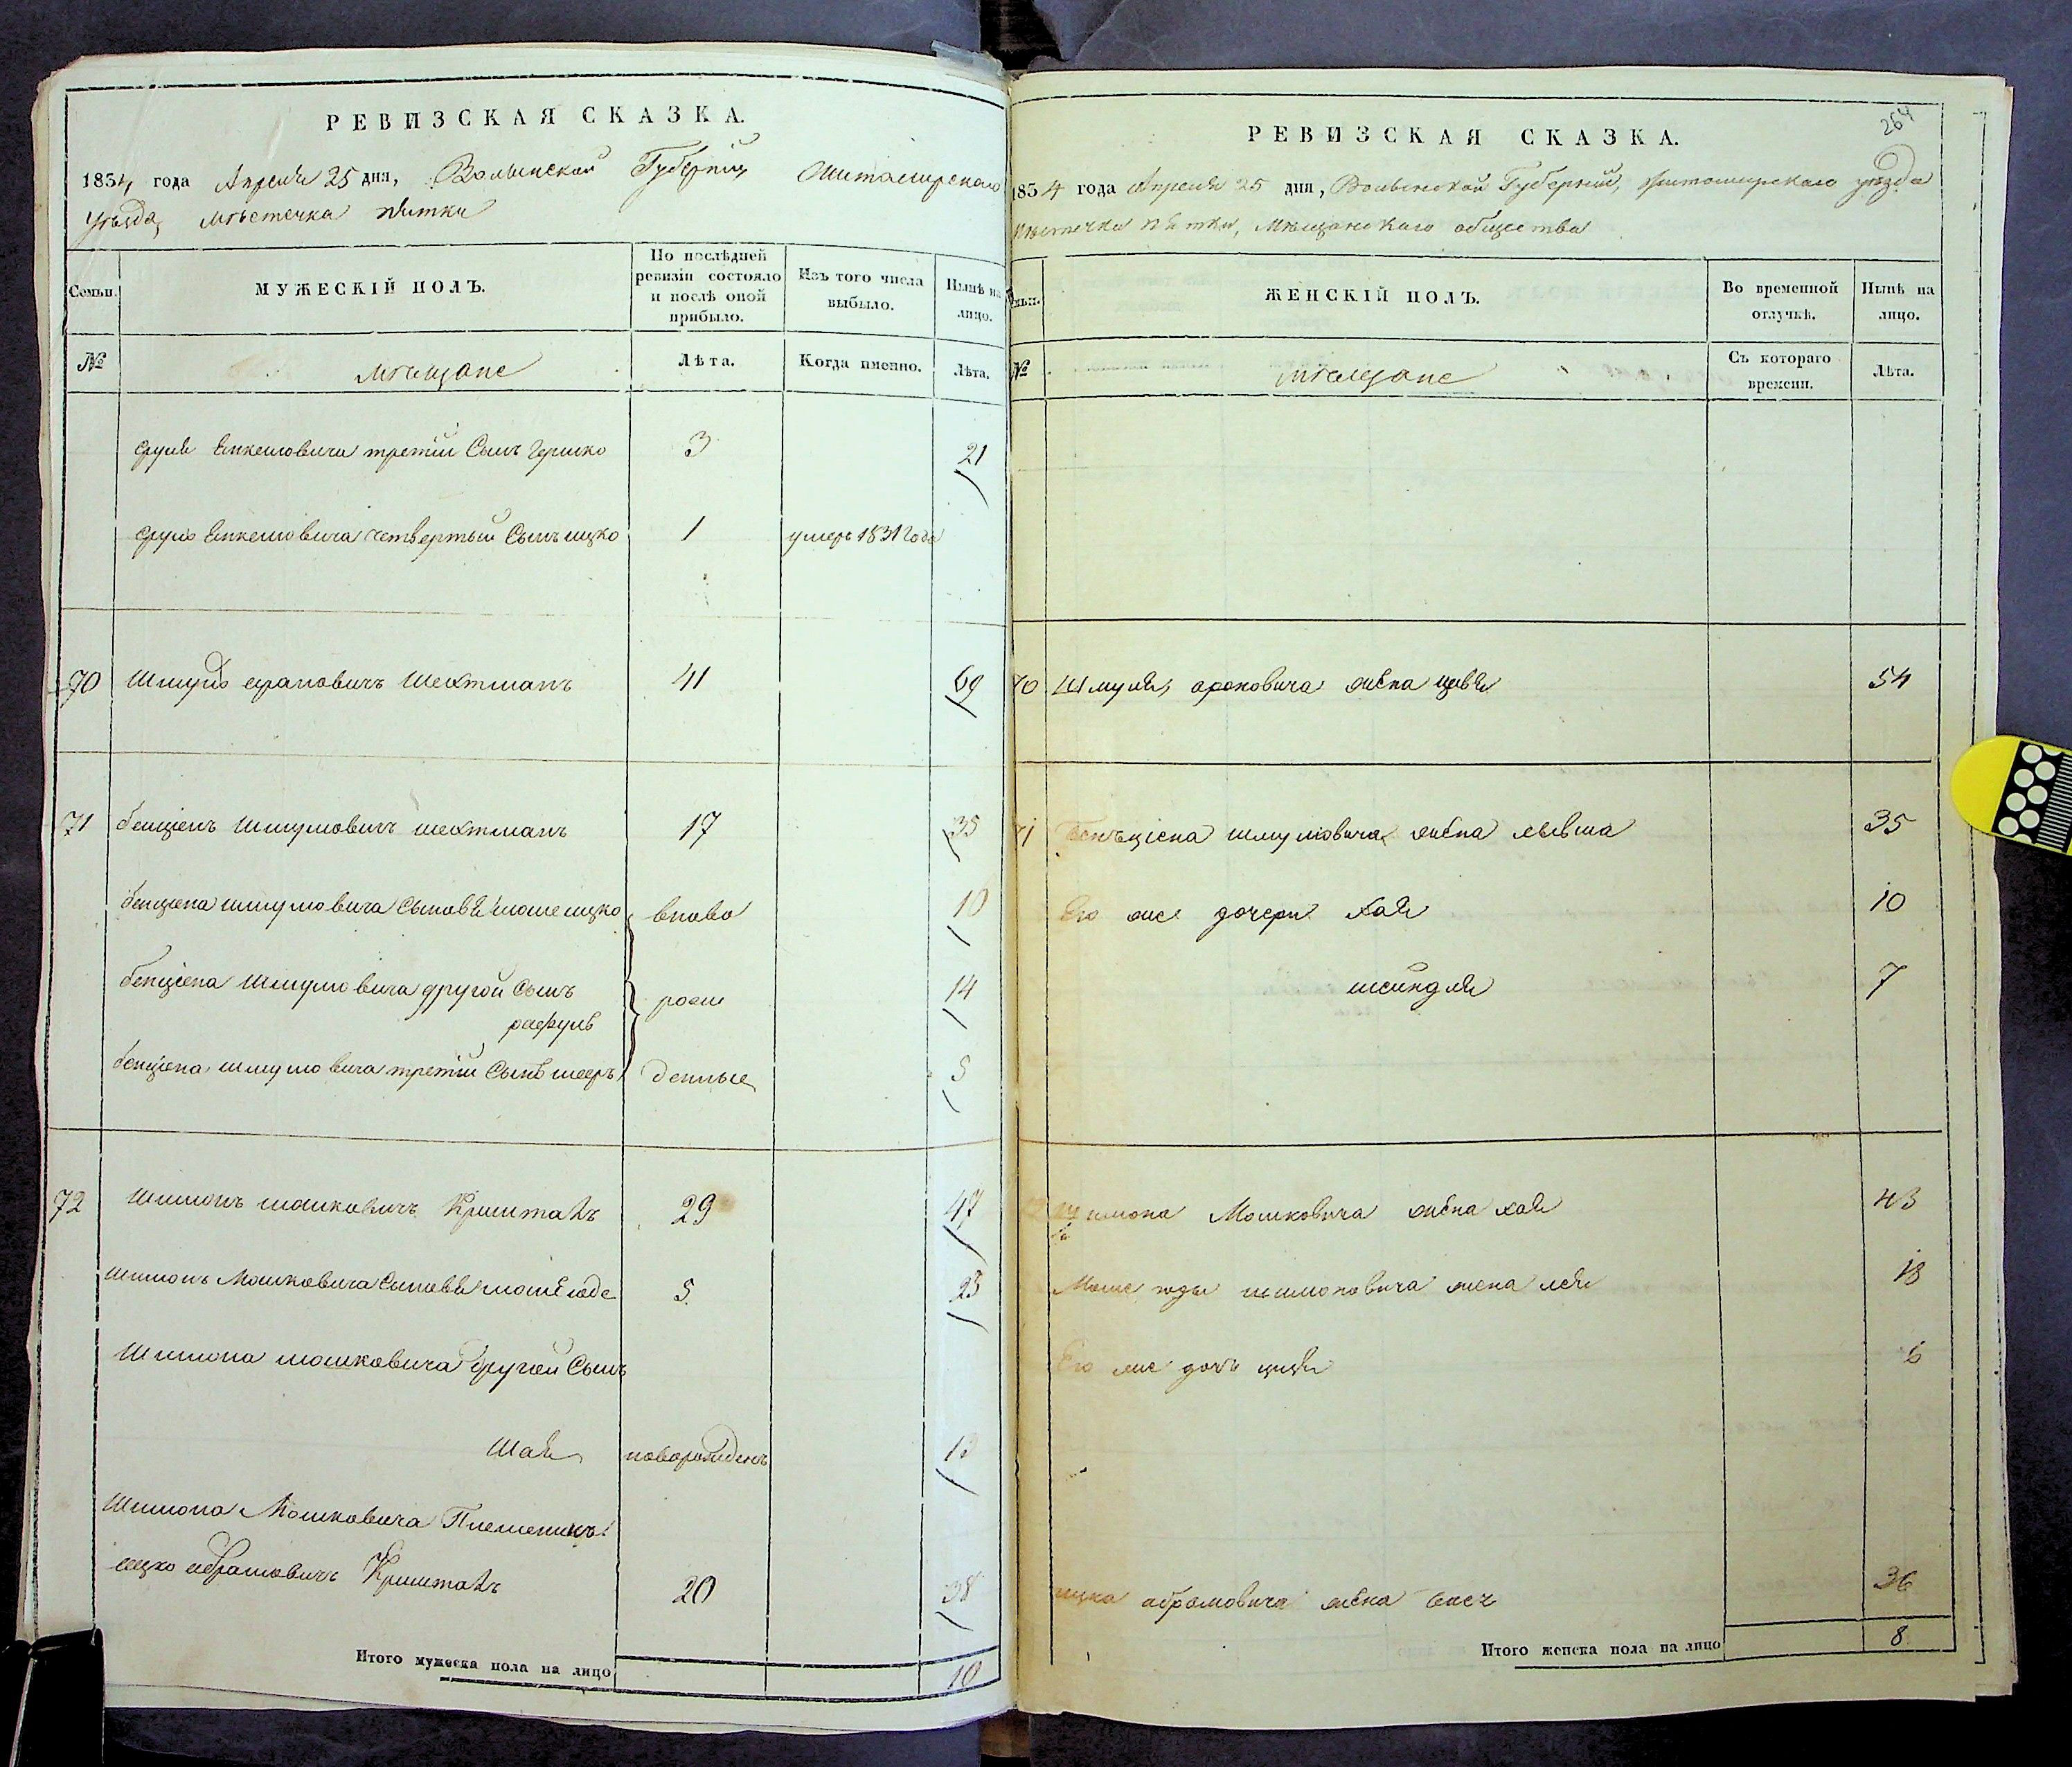 РЕВИЗСКАЯ СКАЗКА.
1834 года Апреля 25 дня, Волынской Губерніи Житомирскаго
Уѣзда, мѣстечка Пятки
Семьи.
МУЖЕСКІЙ ПОЛЪ.
По послѣдней ревизіи состояло и послѣ оной прибыло.
Изъ того числа выбыло.
Нынѣ на лицо.
№
мѣщане
Лѣта.
Когда именно.
Лѣта.
Сруля Янкелювича третій Сынъ Гершко 3 21
Сруля Янкелювича четвертый Сынъ ицко 1 умеръ 1831 года
70 Шмуль ароновичъ Шехтманъ 41 69
71 бенціенъ Шмулювичъ шехтманъ 17 35
бенціена шмулювича Сыновья моше ицко вново 10
бенціена Шмулювича другой Сынъ
рафуль рож 14
бенціена шмулювича третій Сынъ мееръ денные 5
72 Шимонъ мошковичъ Кришталь 29 47
Шимонъ Мошковича Сыновья моше юде 5 23
Шимона мошковича другой Сынъ
Шая новорожденъ
Шимона Мошковича Племеникъ
ицко абрамовичъ Кришталь 20 38
Итого мужеска пола на лицо 10
264
РЕВИЗСКАЯ СКАЗКА.
1834 года Апреля 25 дня, Волынской Губерніи, Житомирскаго уѣзда
Мѣстечка Пятки, Мѣщанскаго общества
Семьи.
ЖЕНСКІЙ ПОЛЪ.
Во временной отлучкѣ.
Нынѣ на лицо.
№
мѣщане
Съ котораго времени.
Лѣта.
70 Шмуля ароновича жена цивья 54
71 Бенъціена шмулювича жена 35
Его же дочери Хая 10
шейндля 7
Шимона Мошковича жена хая 43
Моше юды шимоновича жена лея 18
Его же дочь 6
ицка абрамовича жена 36
Итого женска пола на лицо 8